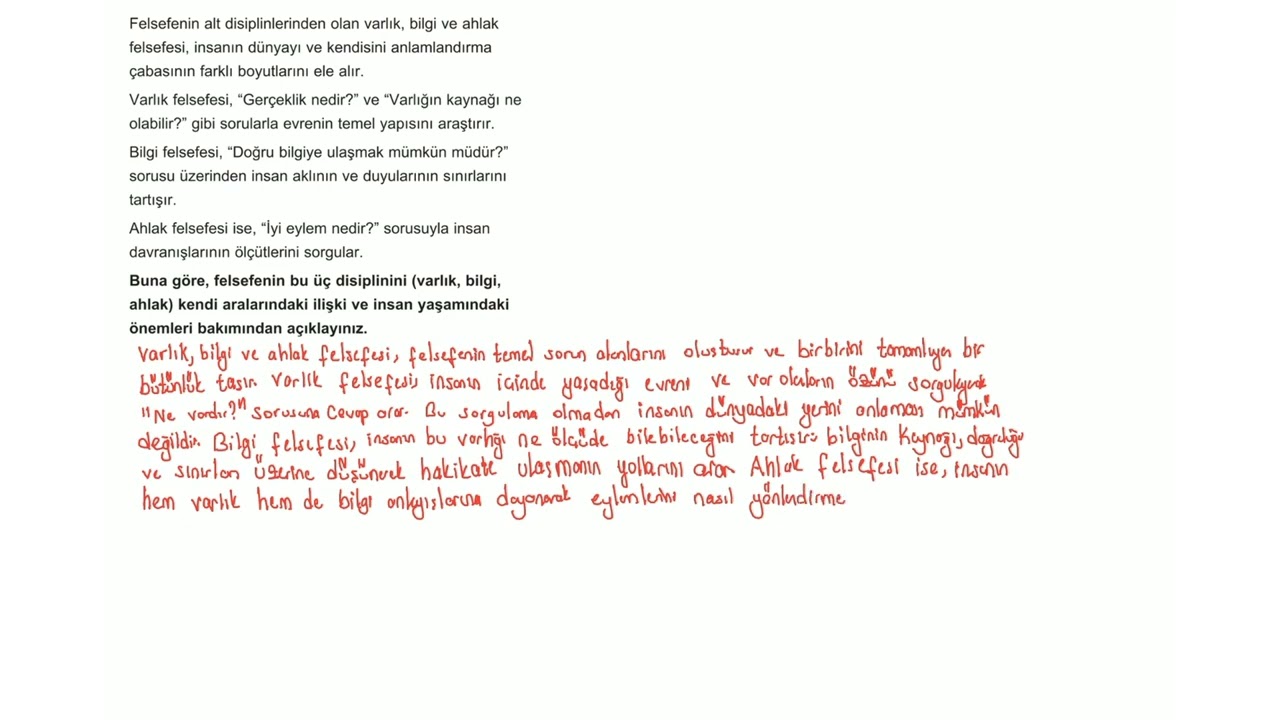 Felsefenin alt disiplinlerinden olan varlık, bilgi ve ahlak
felsefesi, insanın dünyayı ve kendisini anlamlandırma
çabasının farklı boyutlarını ele alır.
Varlık felsefesi, “Gerçeklik nedir?” ve “Varlığın kaynağı ne
olabilir?” gibi sorularla evrenin temel yapısını araştırır.
Bilgi felsefesi, “Doğru bilgiye ulaşmak mümkün müdür?”
sorusu üzerinden insan aklının ve duyularının sınırlarını
tartışır.
Ahlak felsefesi ise, “İyi eylem nedir?” sorusuyla insan
davranışlarının ölçütlerini sorgular.
Buna göre, felsefenin bu üç disiplinini (varlık, bilgi,
ahlak) kendi aralarındaki ilişki ve insan yaşamındaki
önemleri bakımından açıklayınız.
Varlık, bilgi ve ahlak felsefesi, felsefenin temel sorun alanlarını oluşturur ve birbirini tamamlayan bir
bütünlük taşır. Varlık felsefesi, insanın içinde yaşadığı evreni ve var olanların özünü sorgulayarak
"Ne vardır?" sorusuna cevap arar. Bu sorgulama olmadan insanın dünyadaki yerini anlaması mümkün
değildir. Bilgi felsefesi, insanın bu varlığı ne ölçüde bilebileceğini tartışır; bilginin kaynağı, doğruluğu
ve sınırları üzerine düşünerek hakikate ulaşmanın yollarını arar. Ahlak felsefesi ise, insanın
hem varlık hem de bilgi anlayışlarına dayanarak eylemlerini nasıl yönlendirme